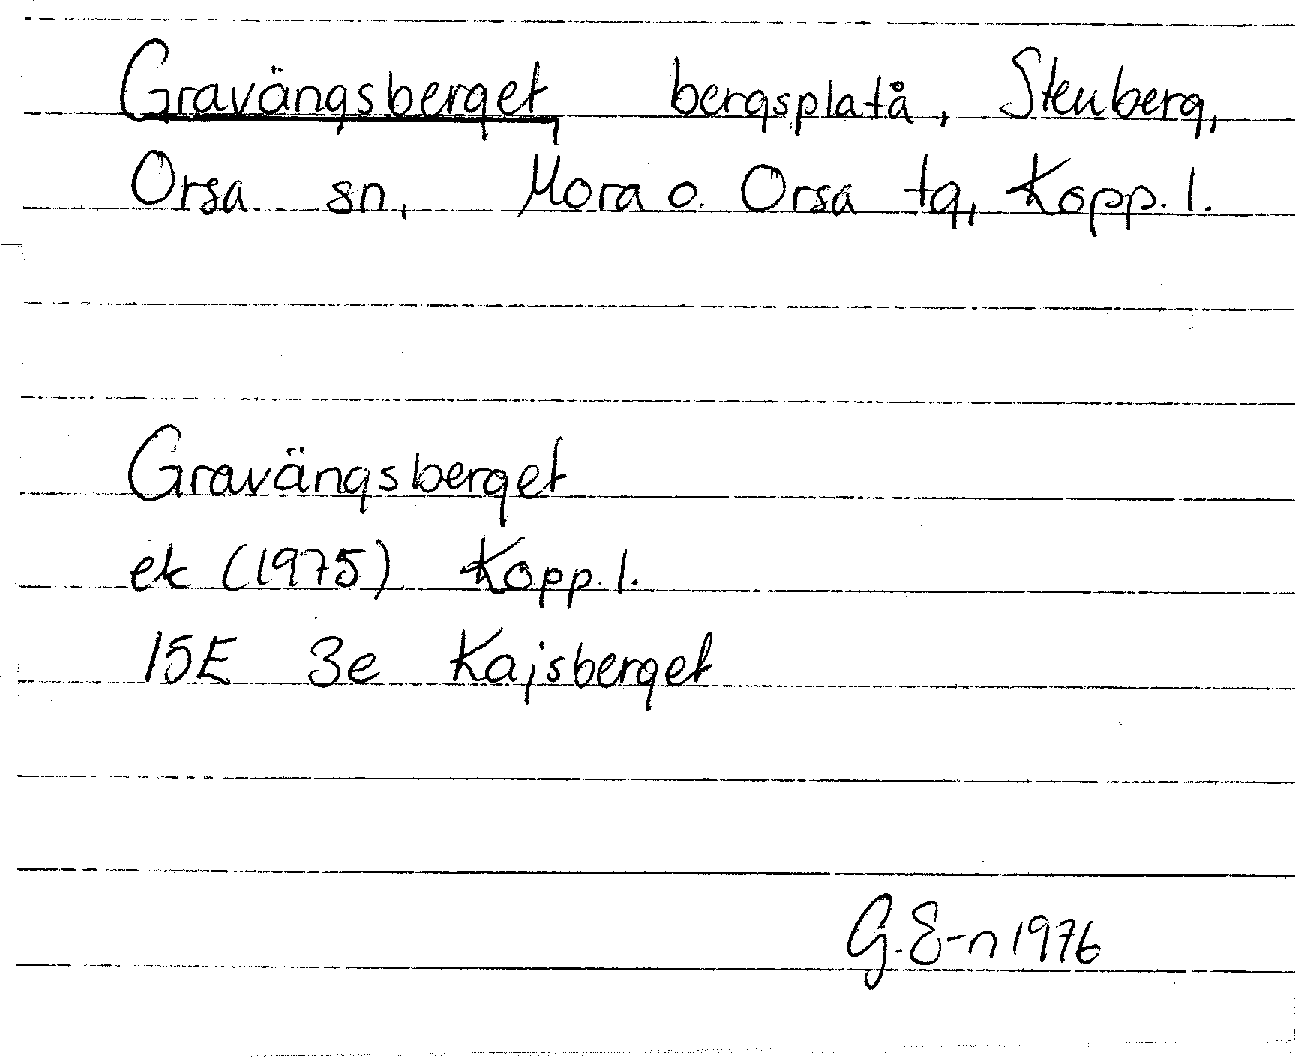 Gravängsberget bergsplatå, Stenberg,
Orsa sn, Mora o. Orsa tg, Kopp. l.
Gravängsberget
ek (1975) Kopp. l.
15E 3e Kajsberget
G. E-n 1976